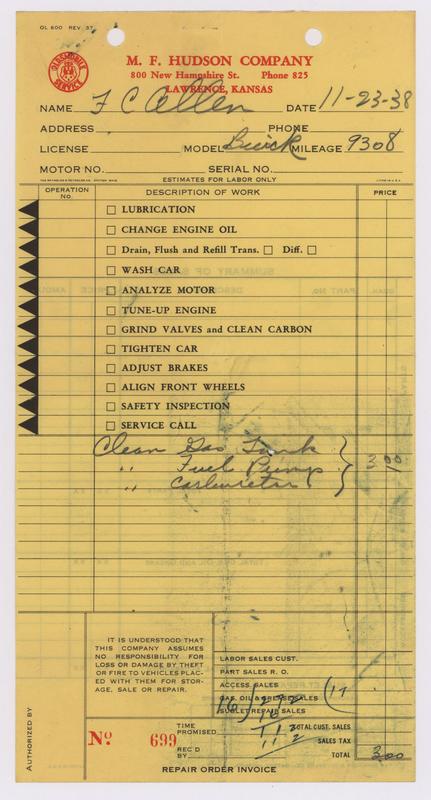 OL 600 REV 37
OLDSMOBILE SERVICE
M. F. HUDSON COMPANY
800 New Hampshire St. Phone 825
LAWRENCE, KANSAS
NAME F C Allen DATE 11-23-38
ADDRESS PHONE
LICENSE MODEL Buick MILEAGE 9308
MOTOR NO. SERIAL NO.
ESTIMATES FOR LABOR ONLY
OPERATION NO. DESCRIPTION OF WORK PRICE
LUBRICATION
CHANGE ENGINE OIL
Drain, Flush and Refill Trans. Diff.
WASH CAR
ANALYZE MOTOR
TUNE-UP ENGINE
GRIND VALVES and CLEAN CARBON
TIGHTEN CAR
ADJUST BRAKES
ALIGN FRONT WHEELS
SAFETY INSPECTION
SERVICE CALL
Clean Gas Tank
" Fuel Pump 3.00
" Carburetor
IT IS UNDERSTOOD THAT
THIS COMPANY ASSUMES
NO RESPONSIBILITY FOR
LOSS OR DAMAGE BY THEFT
OR FIRE TO VEHICLES PLAC-
ED WITH THEM FOR STOR-
AGE, SALE OR REPAIR.
LABOR SALES CUST.
PART SALES R. O.
ACCESS. SALES
GAS, OIL GREASE SALES
SUBLET REPAIR SALES
TOTAL CUST. SALES
SALES TAX
TOTAL 3.00
AUTHORIZED BY
No 699
TIME PROMISED
REC'D BY
REPAIR ORDER INVOICE